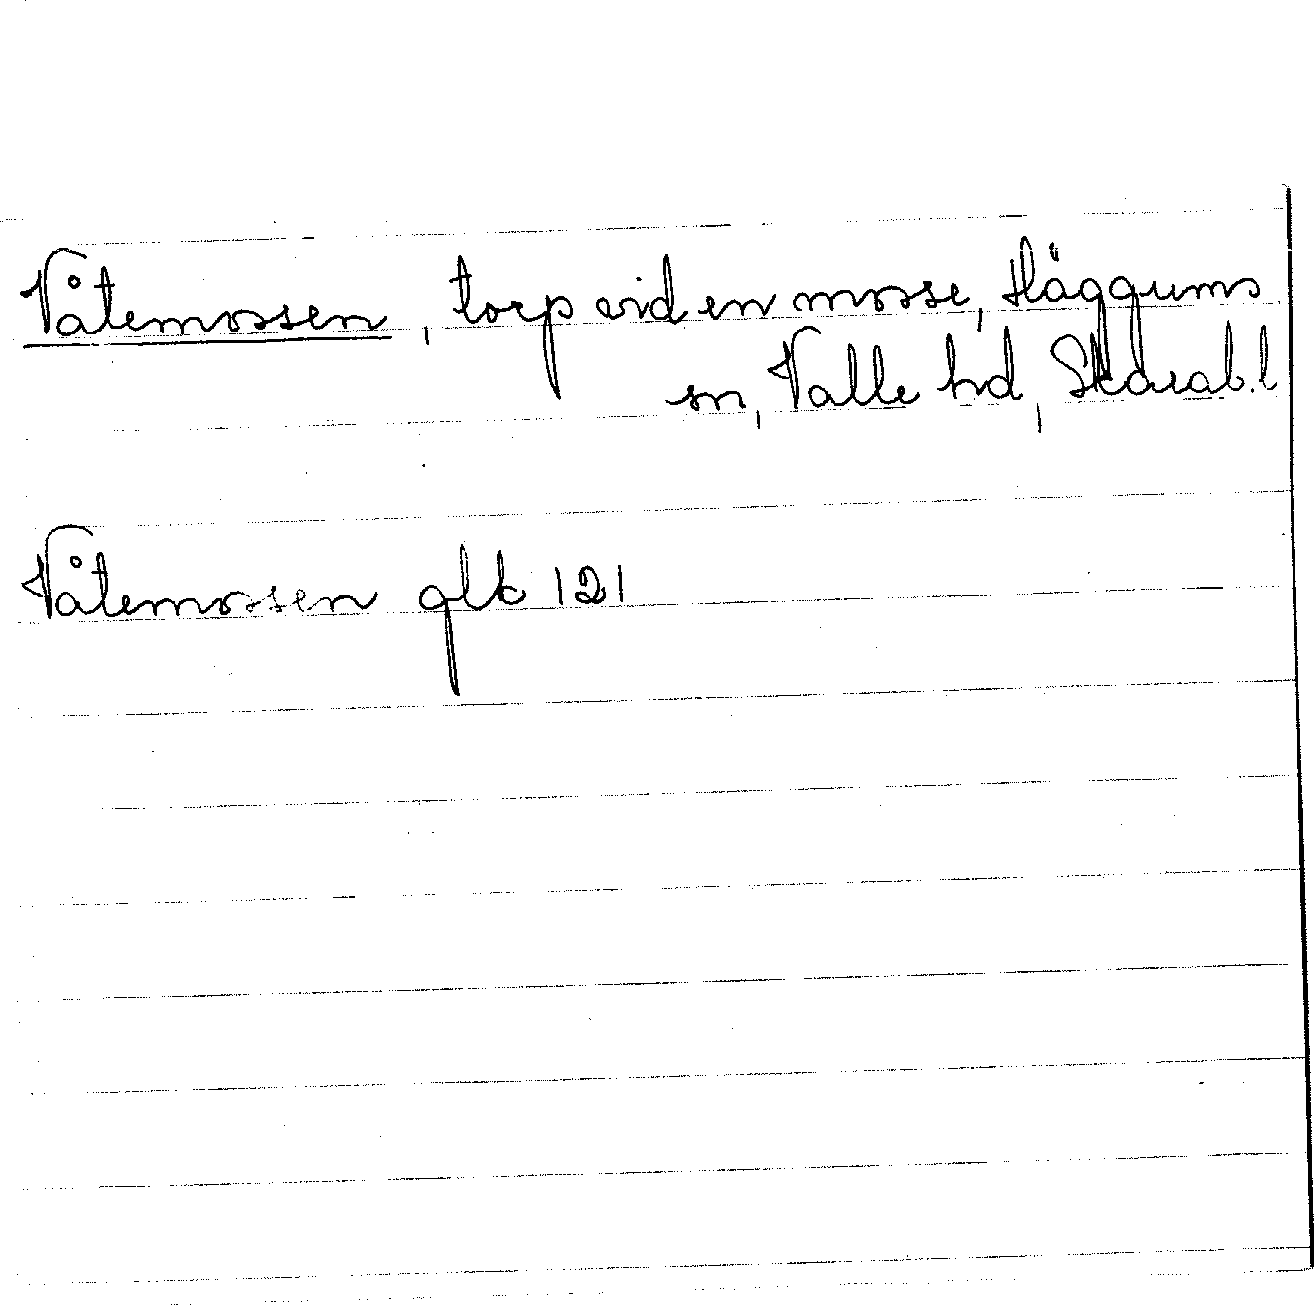 Våtemossen, torp vid en mosse, Häggums
sn, Valle hd, Skarab.l
Våtemossen glk 121